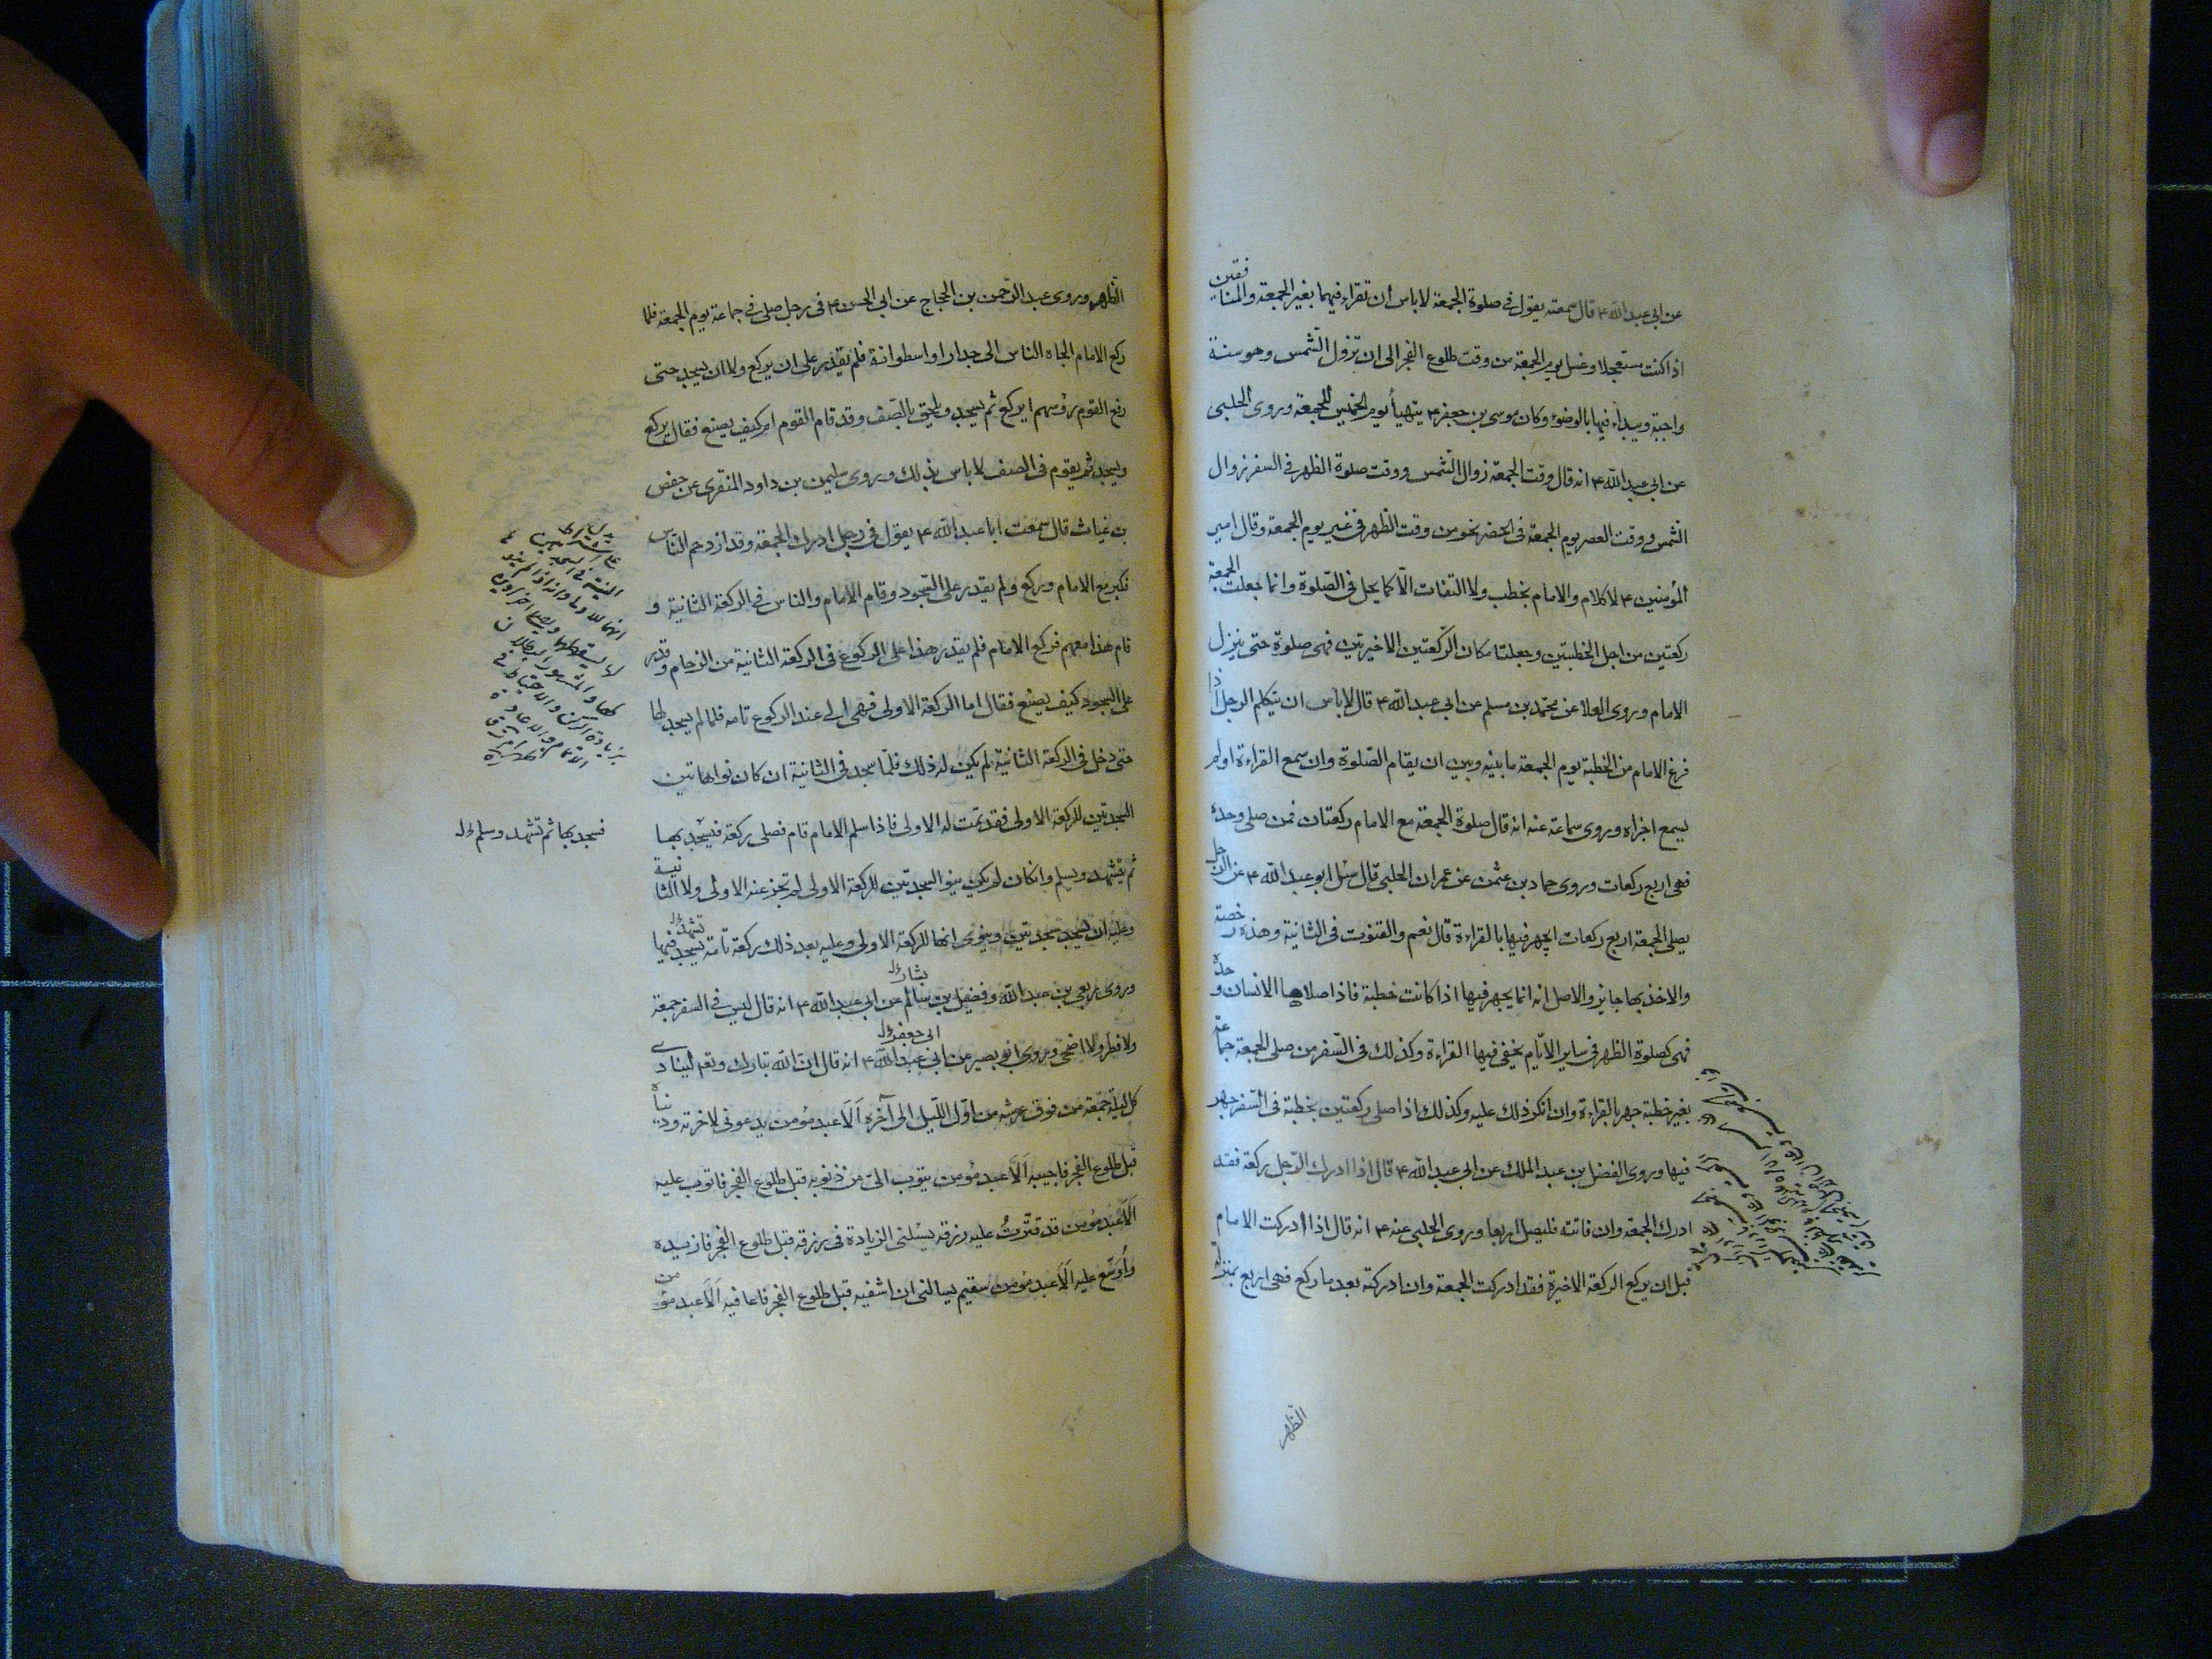 عن ابى عبد الله ۴ قال سمعته يقول فى صلوة الجمعة لا باس ان تقراء فيهما بغير الجمعة والمنافقين
اذا كنت مستعجلا وغسل يوم الجمعة من وقت طلوع الفجر الى ان تزول الشمس وهو سنة
واجبة ويبداء فيها بالوضوء وكان موسى بن جعفر ۴ يتهيأ يوم الخميس للجمعة وروى الحلبى
عن ابى عبد الله ۴ انه قال وقت الجمعة زوال الشمس ووقت صلوة الظهر فى السفر زوال
الشمس ووقت العصر يوم الجمعة فى الحضر نحو من وقت الظهر فى غير يوم الجمعة وقال امير
المؤمنين ۴ لا كلام والامام يخطب ولا التفات الّا كما يحل فى الصّلوة وانما جعلت الجمعة
ركعتين من اجل الخطبتين وجعلتا مكان الرّكعتين الاخيرتين فهى صلوة حتى ينزل
الامام وروى العلا عن محمّد بن مسلم عن ابى عبد الله ۴ قال لا باس ان يتكلم الرجل اذا
فرغ الامام من الخطبة يوم الجمعة ما بينه وبين ان يقام الصّلوة وان سمع القراءة او لم
يسمع اجزاه وروى سماعة عنه انه قال صلوة الجمعة مع الامام ركعتان فمن صلى وحده
فهى اربع ركعات وروى حماد بن عثمن عن عمران الحلبى قال سئل ابو عبد الله ۴ عن الرجل
يصلى الجمعة اربع ركعات ايجهر فيها بالقراءة قال نعم والقنوت فى الثانية وهذه رخصة
والاخذ بها جايز والاصل انه انما يجهر فيها اذا كانت خطبة فاذا صلاها الانسان وحده
فهى كصلوة الظهر فى ساير الايّام يخفى فيها القراءة وكذلك فى السّفر من صلى الجمعة جماعة
بغير خطبة جهر بالقراءة وان انكر ذلك عليه وكذلك اذا صلى ركعتين بخطبة فى السّفر جهر
فيها وروى الفضل بن عبد الملك عن ابى عبد الله ۴ قال اذا ادرك الرّجل ركعة فقد
ادرك الجمعة وان فاتته فليصل اربعا وروى الحلبى عنه ۴ انه قال اذا ادركت الامام
قبل ان يركع الركعة الاخيرة فقد ادركت الجمعة وان ادركته بعد ما ركع فهى اربع بمنزلة
الظهر
الظهر وروى عبد الرّحمن بن الحجاج عن ابى الحسن ۴ فى رجل صلى فى جماعة يوم الجمعة فلما
ركع الامام الجاه الناس الى جدار او اسطوانة فلم يقدر على ان يركع ولا ان يسجد حتى
رفع القوم رؤسهم ايركع ثم يسجد ويلحق بالصّف وقد قام القوم ام كيف يصنع فقال يركع
ويسجد ثم يقوم فى الصف لا باس بذلك وروى سليمن بن داود المنقرى عن حفص
بن غياث قال سمعت ابا عبد الله ۴ يقول فى رجل ادرك الجمعة وقد ازدحم الناس
فكبر مع الامام وركع ولم يقدر على السّجود وقام الامام والناس فى الركعة الثانية و
قام هذا معهم فركع الامام فلم يقدر هذا على الركوع فى الركعة الثانية من الزحام وقدر
على السجود كيف يصنع فقال اما الركعة الاولى فهى الى عند الركوع تامه فلما لم يسجد لها
حتى دخل فى الركعة الثانية لم يكن له ذلك فلمّا سجد فى الثانية ان كان نوا هاتين
السجدتين للركعة الاولى فقد تمت له الاولى فاذا سلم الامام قام فصلى ركعة فيسجد بها
ثم يتشهد ويسلم وان كان لم يكن ينو السجدتين للركعة الاولى لم تجز عنه الاولى ولا الثانية
وعليه ان يسجد سجدتين وينوى انها للركعة الاولى وعليه بعد ذلك ركعة تامة يسجد فيها
وروى ربعى بن عبد الله وفضيل بن يسار عن ابى عبد الله ۴ انه قال ليس فى السفر جمعة
ولا فطر ولا اضحى وروى ابو بصير عن ابى عبد الله ۴ انه قال انّ الله تبارك وتعم لينادى
كل ليلة جمعة من فوق عرشه من اوّل اللّيل الى آخره اَلَا عبد مؤمن يدعونى لاخرته ودنياه
قبل طلوع الفجر فاجيبه اَلَا عبد مؤمن يتوب الىّ من ذنوبه قبل طلوع الفجر فاتوب عليه
اَلَا عبد مؤمن قد قتّرتُ عليه رزقه يسئلنى الزيادة فى رزقه قبل طلوع الفجر فازيده
واُوسّع عليه اَلَا عبد مؤمن سقيم يسالنى ان اشفيه قبل طلوع الفجر فاعافيه اَلَا عبد مؤمن
فسجد بها ثم تشهد وسلم
ابى جعفر